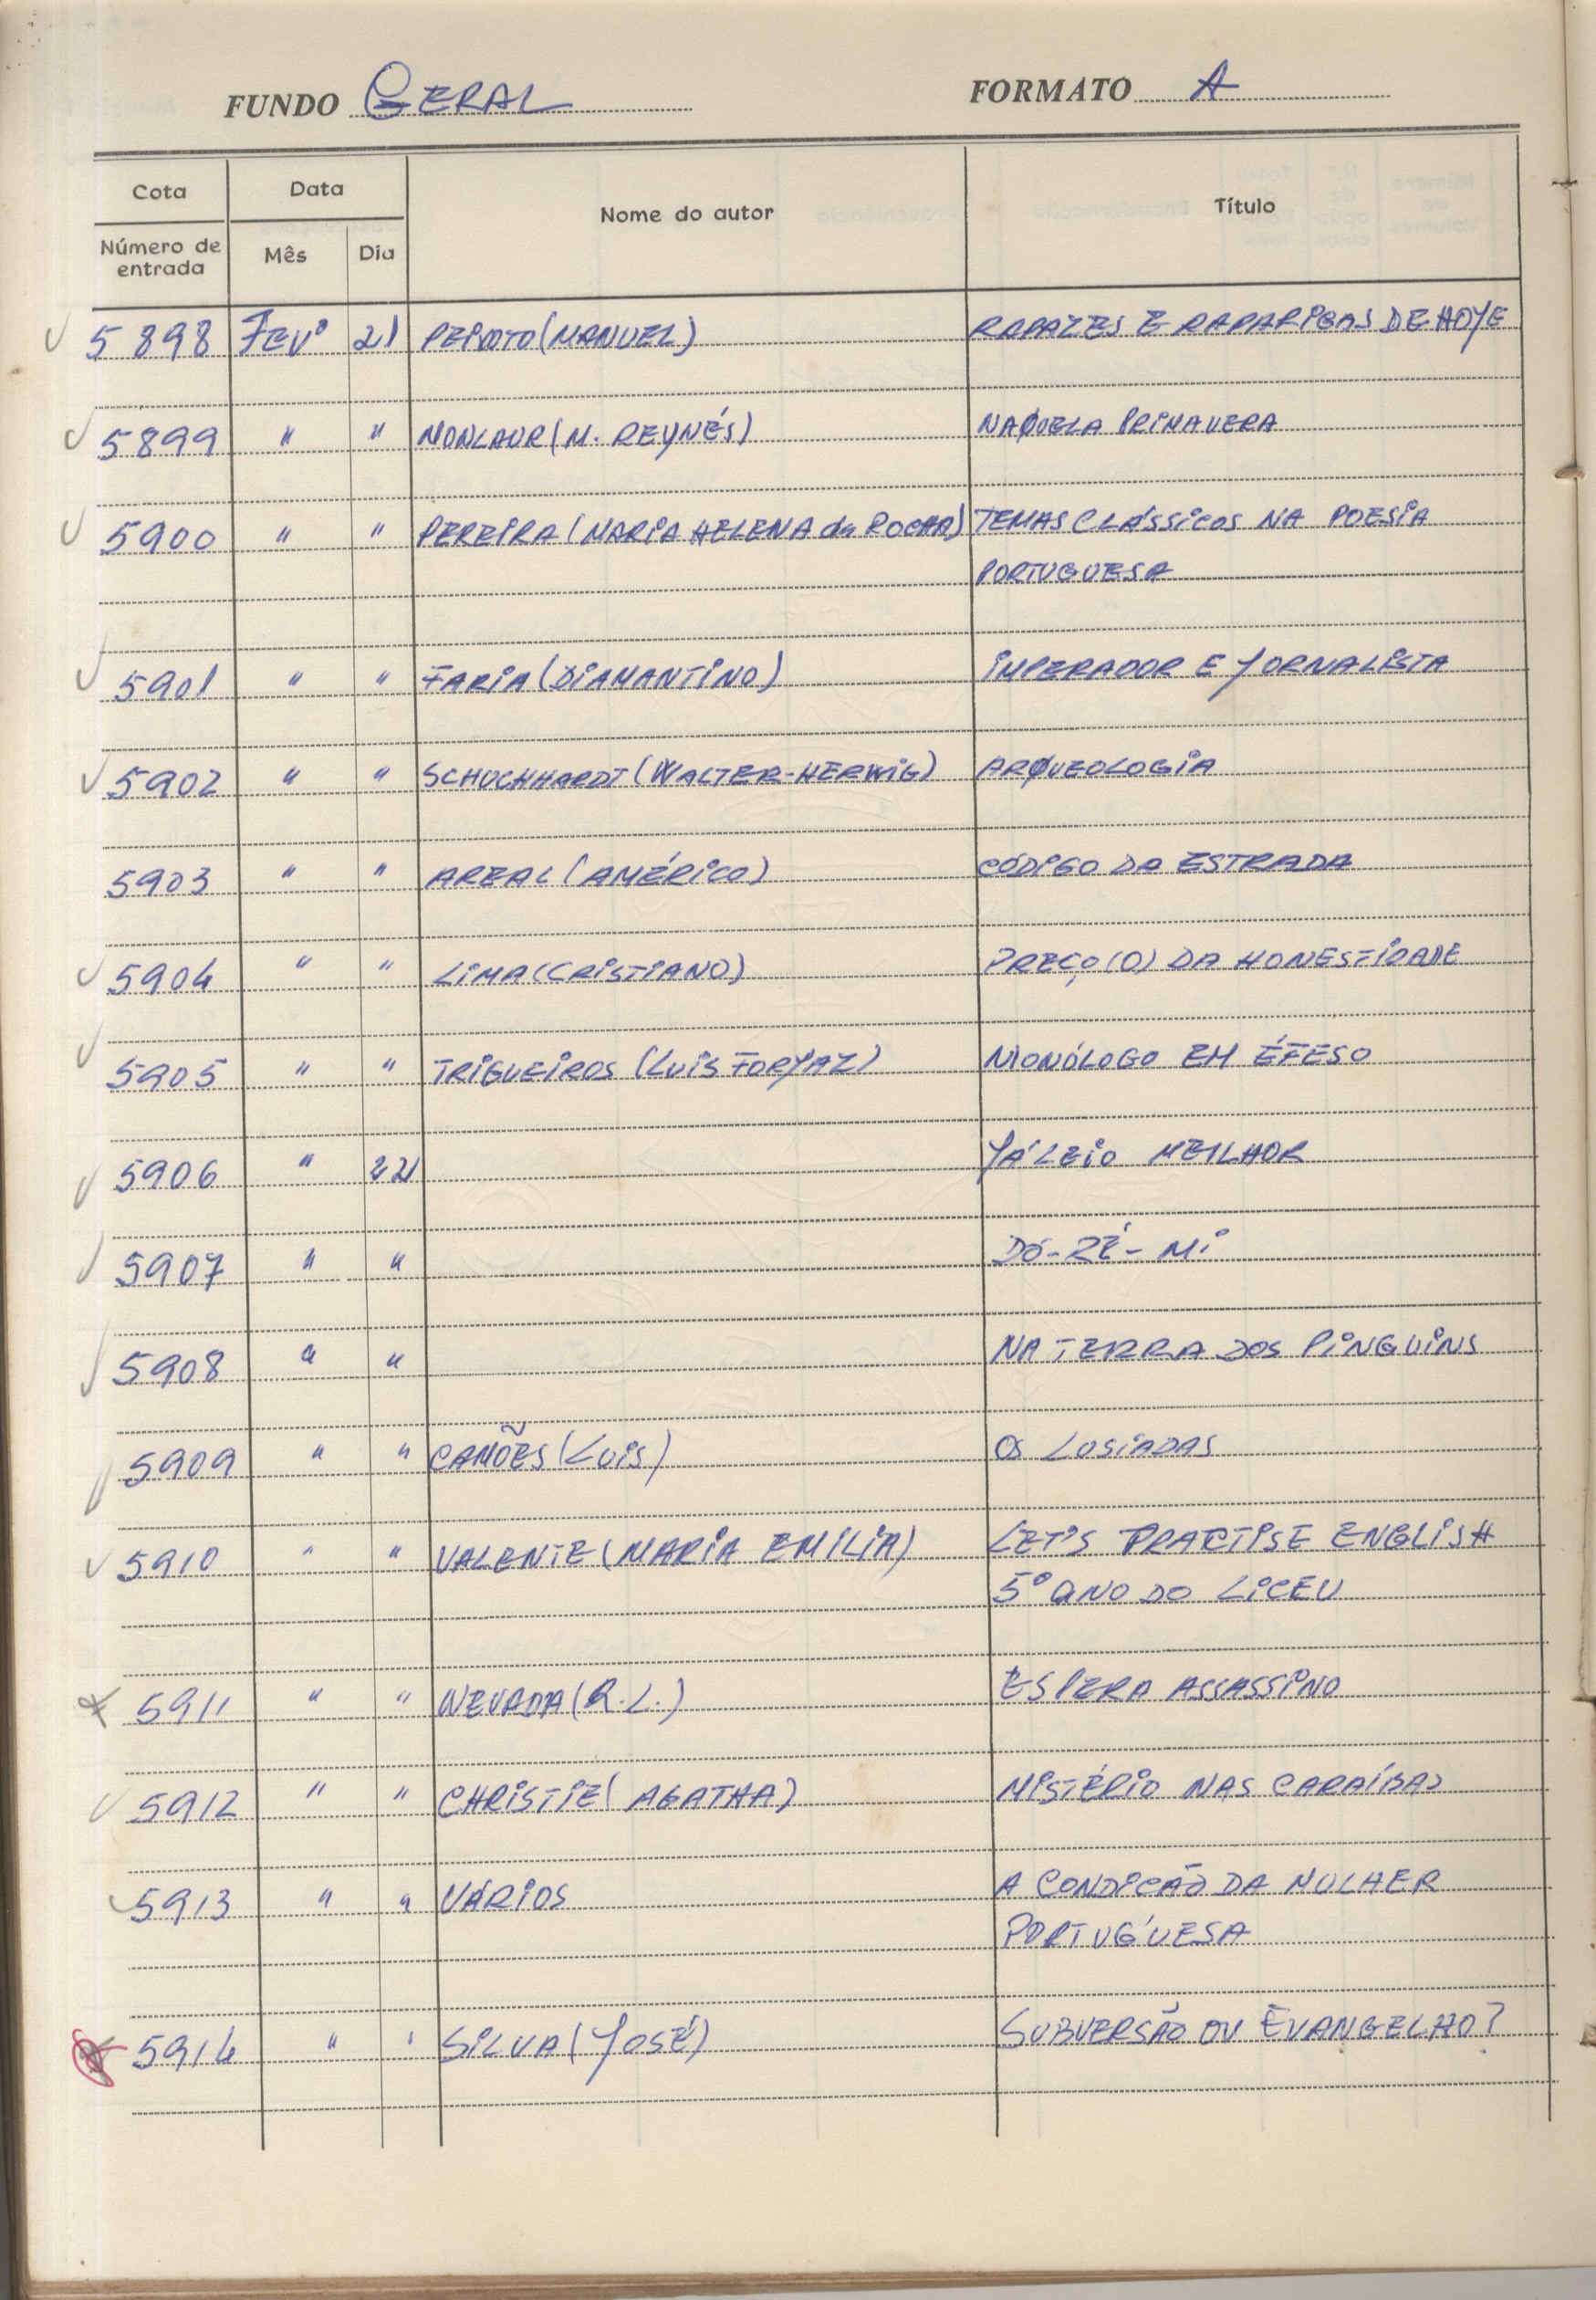 FUNDO GERAL FORMATO A
Cota Data Nome do autor Título
Número de entrada Mês Dia
5898 Fevº 21 PEIXOTO (MANUEL) RAPAZES E RAPARIGAS DE HOJE
5899 " " MONLAUR (M. REYNÉS) NAQUELA PRIMAVERA
5900 " " PEREIRA (MARIA HELENA da ROCHA) TEMAS CLÁSSICOS NA POESIA
PORTUGUESA
5901 " " FARIA (DIAMANTINO) IMPERADOR E JORNALISTA
5902 " " SCHUCHHARDT (WALTER-HERWIG) ARQUEOLOGIA
5903 " " AREAL (AMÉRICO) CÓDIGO DA ESTRADA
5904 " " LIMA (CRISTIANO) PREÇO (O) DA HONESTIDADE
5905 " " TRIGUEIROS (LUIS FORJAZ) MONÓLOGO EM ÉFESO
5906 " 22 JÁ LEIO MELHOR
5907 " " DÓ-RÉ-Mi
5908 " " NA TERRA DOS PINGUINS
5909 " " CAMÕES (LUIS) OS LUSIADAS
5910 " " VALENTE (MARIA EMILIA) LET'S PRACTISE ENGLISH
5º ANO DO LICEU
5911 " " NEVADA (R.L.) ESPERA ASSASSINO
5912 " " CHRISTIE (AGATHA) MISTÉRIO NAS CARAÍBAS
5913 " " VÁRIOS A CONDICÃO DA MULHER
PORTUGUESA
5914 " " SILVA (JOSÉ) SUBVERSÃO OU EVANGELHO?